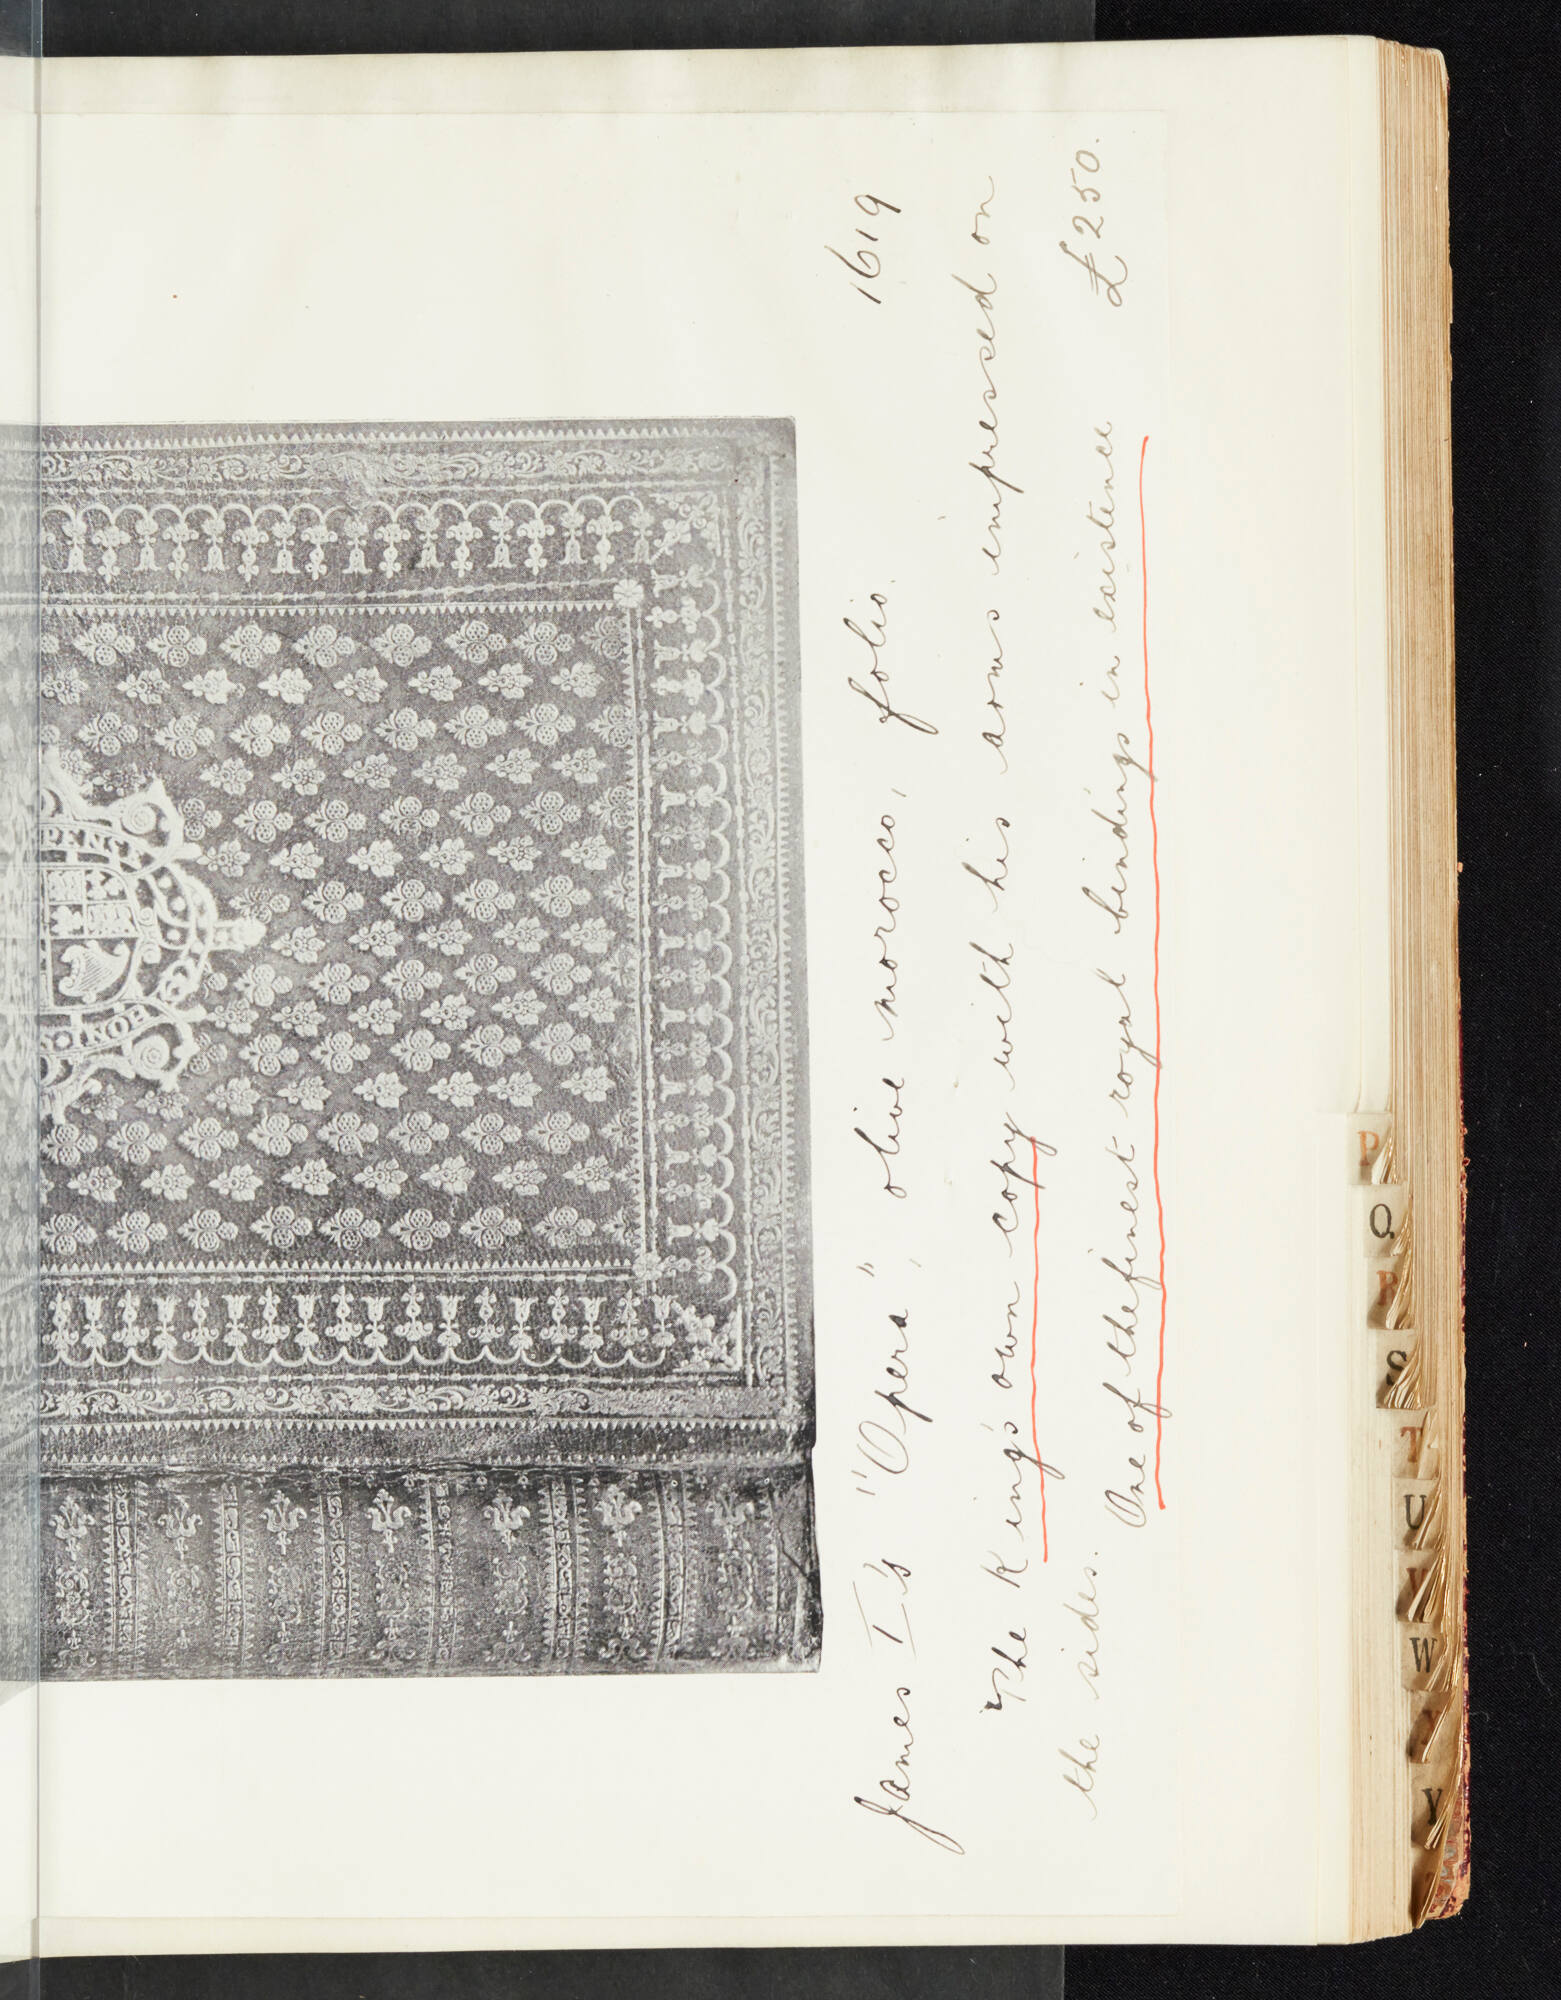 James I's "Opera", olive morocco, folio. 1619
The King's own copy with his arms impressed on
the sides. One of the finest royal bindings in existence £250.
PENSE
HONI SO
P
Q
R
S
T
U
V
W
Y